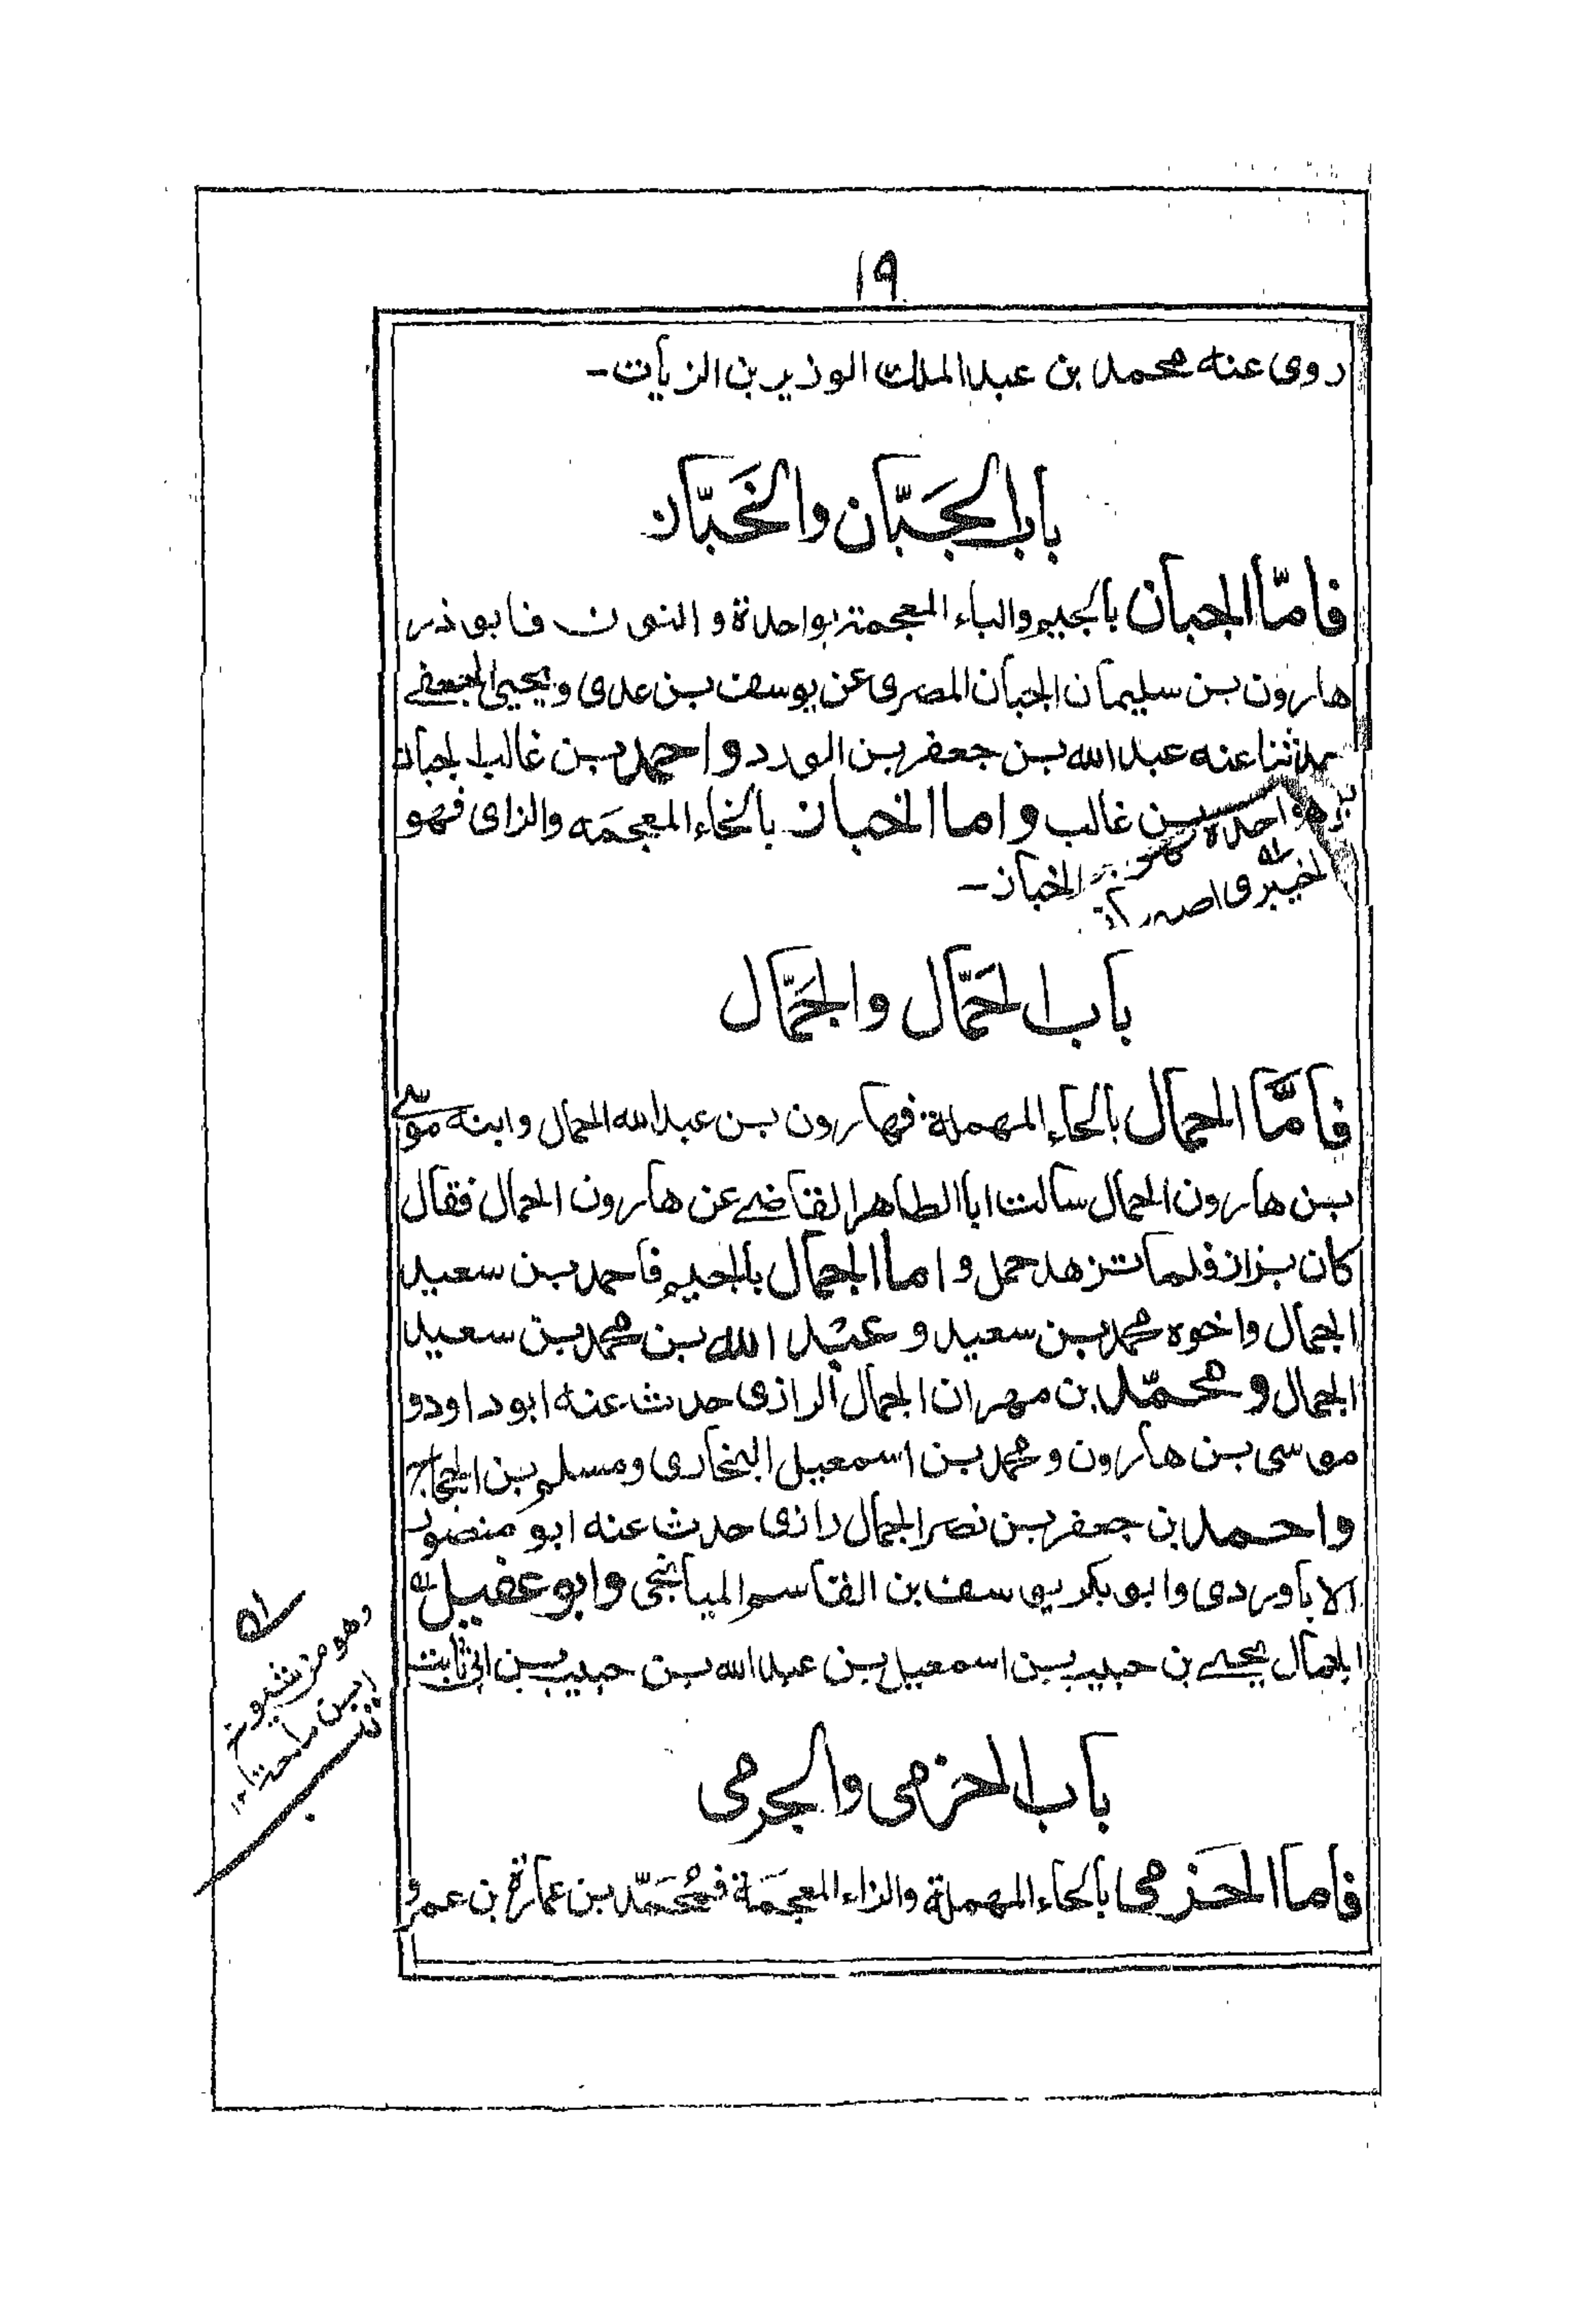 ١٩
روى عنه محمد بن عبد الملك الوزير بن الزيات-
باب الجَبَّان والخَبَّاز
فامّا الجبان بالجيم والباء المعجمة بواحدة والنون فابوذر
هارون بن سليمان الجبان المصرى عن يوسف بن عدى ويحيى الجعفى
حدثنا عنه عبد الله بن جعفر بن الورد واحمد بن غالب الجبان
بن غالب واما الخباز بالخاء المعجمه والزاى فهو
الخباز-
باب الحَمَّال والجَمَّال
فامَّا الحمال بالحاء المهملة فهارون بن عبد الله الحمال وابنه موسى
بن هارون الحمال سالت ابا الطاهر القاضى عن هارون الحمال فقال
كان بزاز فلما تزهد حمل واما الجمال بالجيم فاحمد بن سعيد
الجمال واخوه محمد بن سعيد وعبد الله بن محمد بن سعيد
الجمال ومحمّد بن مهران الجمال الرازى حدث عنه ابو داود و
موسى بن هارون ومحمد بن اسمعيل البخارى ومسلم بن الحجاج
واحمد بن جعفر بن نصر الجمال رازى حدث عنه ابو منصور
الاباوردى وابو بكر يوسف بن القاسم الميانجى وابو عقيل
الجمال يحيى بن حبيب بن اسمعيل بن عبد الله بن حبيب بن ابى ثابت
وهو من شيوخ
ابن
باب الحزمى والجرمى
فاما الحَزمى بالحاء المهملة والزاء المعجمَة فمُحَمَّد بن عمارة بن عمرو